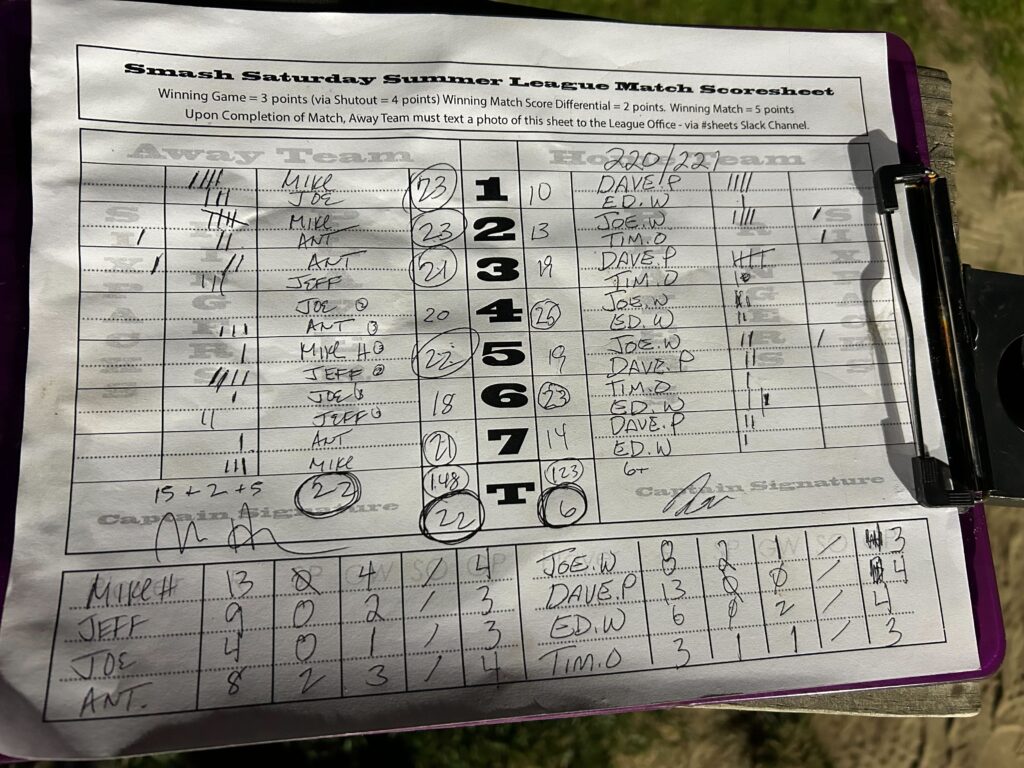 Smash Saturday Summer League Match Scoresheet
Winning Game = 3 points (via Shutout = 4 points) Winning Match Score Differential = 2 points. Winning Match = 5 points
Upon Completion of Match, Away Team must text a photo of this sheet to the League Office - via #sheets Slack Channel.
Away Team Home Team
220/221
MIKE 23 1 10 DAVE.P
JOE ED.W
MIKE 23 2 13 JOE.W
ANT TIM.O
ANT 21 3 19 DAVE.P
JEFF TIM.O
JOE 20 4 JOE.W
ANT ED.W
MIKE H 22 5 19 JOE.W
JEFF DAVE.P
JOE 18 6 23 TIM.O
JEFF ED.W
ANT 21 7 14 DAVE.P
MIKE ED.W
15 + 2 + 5 22 148 T 123 6+
22 6
Captain Signature Captain Signature
MIKE H 13 0 4 / 4 JOE.W 8 2 1 / 3
JEFF 9 0 2 / 3 DAVE.P 13 0 0 / 4
JOE 4 0 1 / 3 ED.W 6 0 2 / 4
ANT. 8 2 3 / 4 TIM.O 3 1 1 / 3